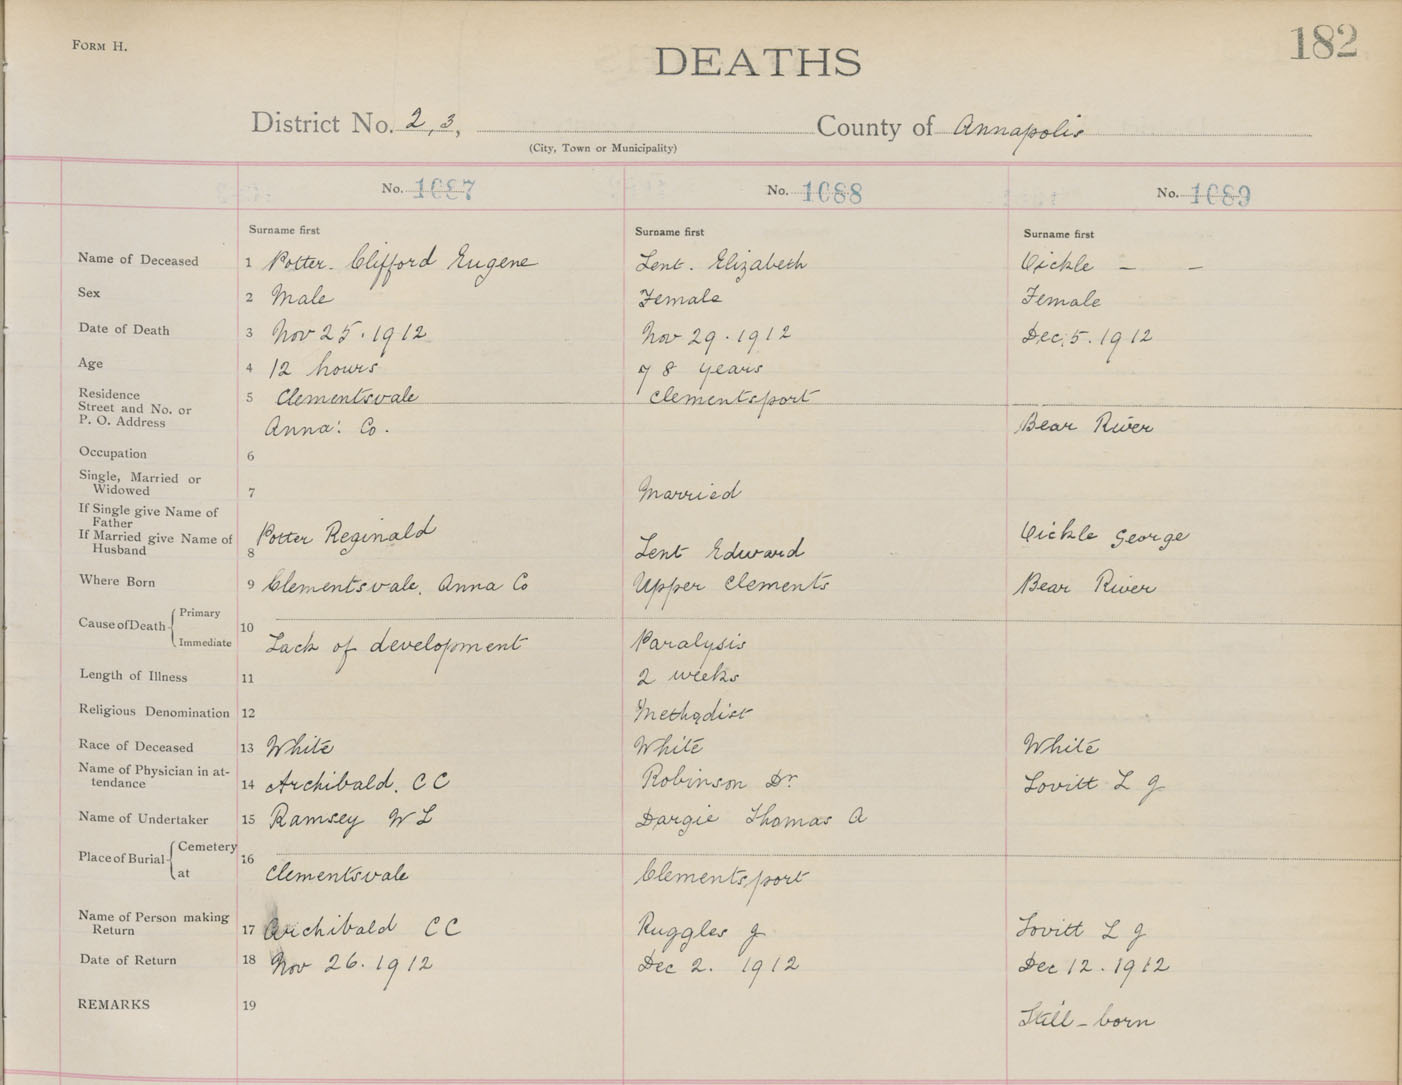 FORM H.
182
DEATHS
District No. 2, 3, County of Annapolis
(City, Town or Municipality)
No. 1087 No. 1088 No. 1089
Surname first Surname first Surname first
Name of Deceased 1 Potter. Clifford Eugene Lent. Elizabeth Vickle – –
Sex 2 Male Female Female
Date of Death 3 Nov 25. 1912 Nov 29. 1912 Dec. 5. 1912
Age 4 12 hours 78 years
Residence 5 Clementsvale Clementsport
Street and No. or
P. O. Address Anna: Co. Bear River
Occupation 6
Single, Married or
Widowed 7 Married
If Single give Name of
Father
If Married give Name of Potter Reginald Vickle George
Husband 8 Lent Edward
Where Born 9 Clementsvale. Anna Co Upper Clements Bear River
Cause of Death Primary 10
Immediate Lack of development Paralysis
Length of Illness 11 2 weeks
Religious Denomination 12 Methodist
Race of Deceased 13 White White White
Name of Physician in at-
tendance 14 Archibald. C C Robinson Dr. Lovitt L J
Name of Undertaker 15 Ramsey W L Dargie Thomas A
Place of Burial Cemetery 16
at Clementsvale Clementsport
Name of Person making
Return 17 Archibald C C Ruggles J Lovitt L J
Date of Return 18 Nov 26. 1912 Dec 2. 1912 Dec 12. 1912
REMARKS 19 Still-born